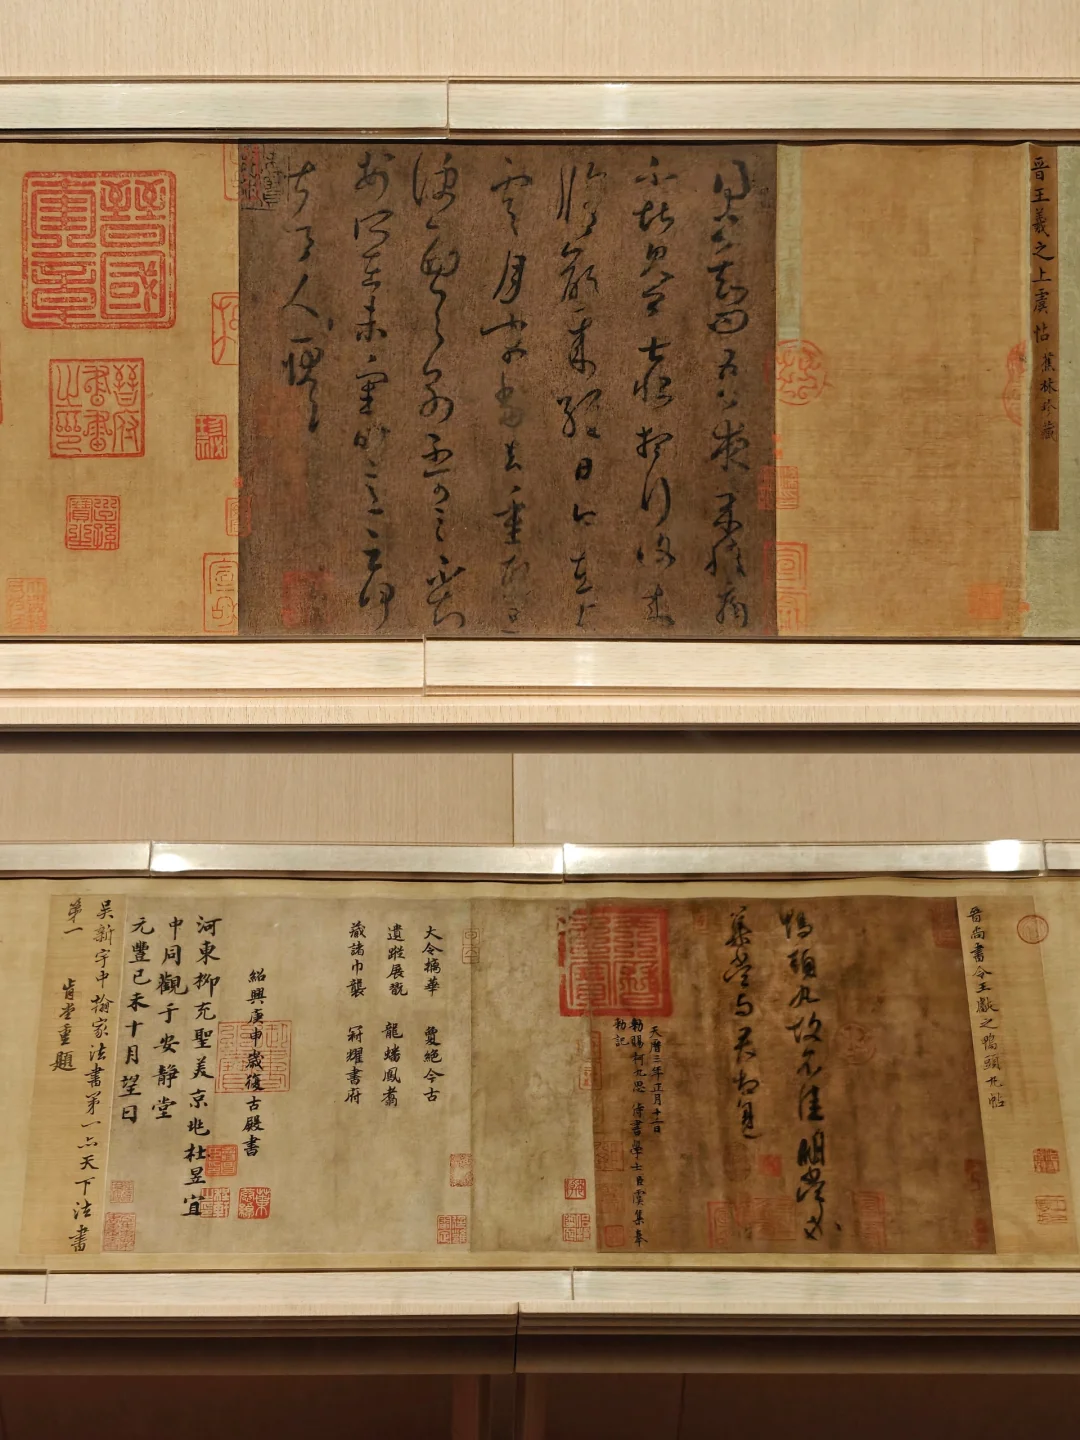 晉王羲之上虞帖 蕉林珍藏
得書知問吾夜來腹痛
不堪見卿甚恨想行復來
修齡來經日今在上
虞月末當去重熙旦
便西與別不可言不知
安所在未審時意云何
甚令人耿耿
晉府書畫之印
晉尚書令王獻之鴨頭丸帖
鴨頭丸故不佳明當必
集當與君相見
天曆三年正月十二日
勑賜柯九思 侍書學士臣虞集奉
勑記
大令摛華 敻絕今古
遺蹤展翫 龍蟠鳳翥
藏諸巾襲 冠耀書府
紹興庚申歲復古殿書
河東柳充聖美京兆杜昱宜
中同觀于安靜堂
元豐己未十月望日
吳新宇中翰家法書第一亦天下法書
第一 肯堂重題